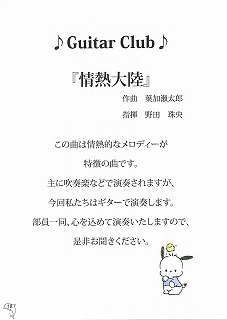 ♪Guitar Club♪
『情熱大陸』
作曲 葉加瀬太郎
指揮 野田 珠央
この曲は情熱的なメロディーが
特徴の曲です。
主に吹奏楽などで演奏されますが、
今回私たちはギターで演奏します。
部員一同、心を込めて演奏いたしますので、
是非お聞きください。